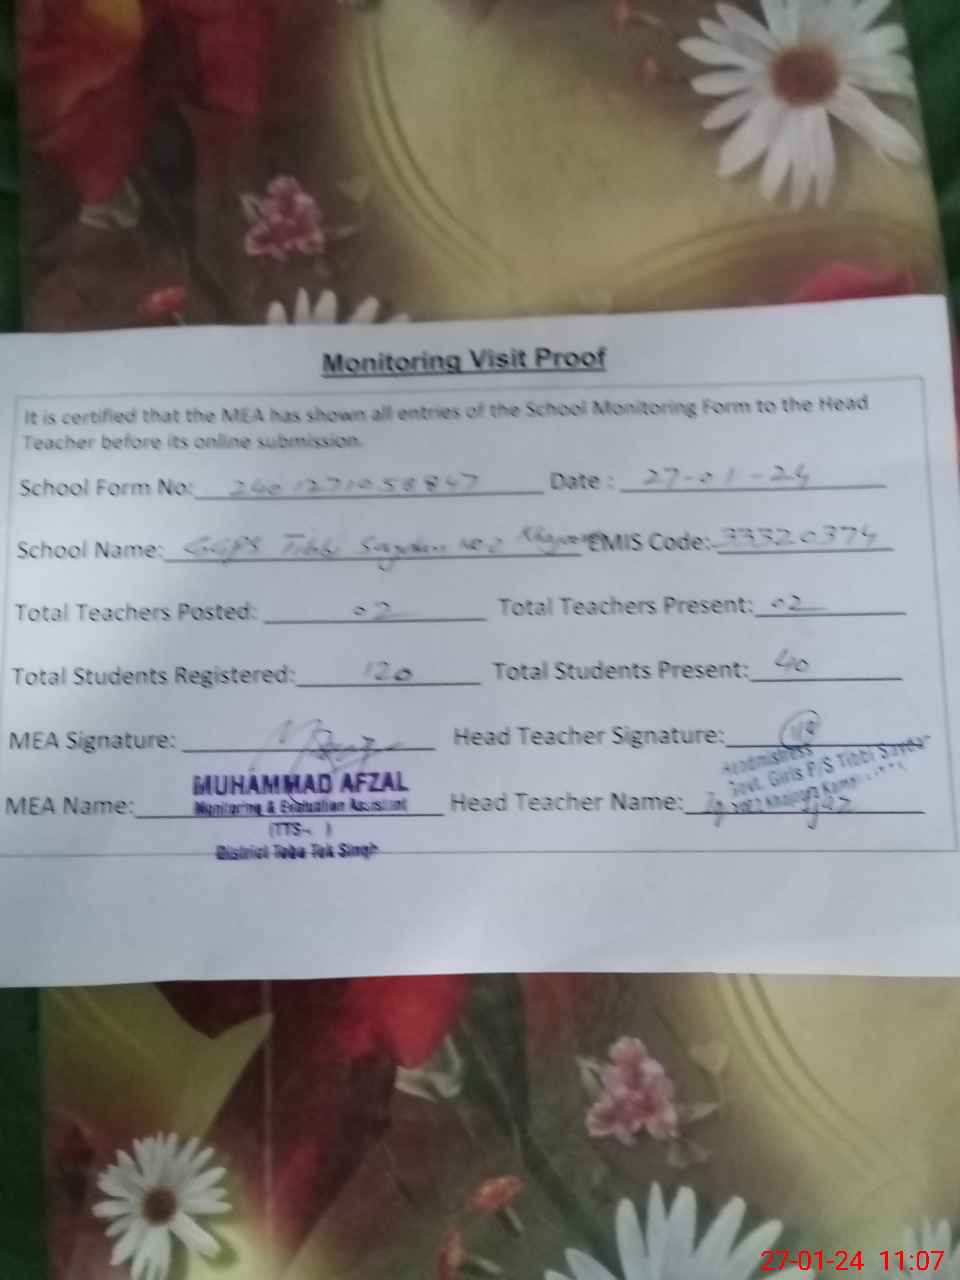 Monitoring Visit Proof
It is certified that the MEA has shown all entries of the School Monitoring Form to the Head
Teacher before its online submission.
School Form No: 2401271058847 Date : 27-01-24
School Name: GGPS Tibbi No 2 EMIS Code: 33320374
Total Teachers Posted: 02 Total Teachers Present: 02
Total Students Registered: 120 Total Students Present: 40
MEA Signature: Head Teacher Signature:
Headmistress
Govt. Girls P/S Tibbi
MEA Name: MUHAMMAD AFZAL Head Teacher Name:
Monitoring & Evaluation Assistant
(TTS- )
District Toba Tek Singh
27-01-24 11:07